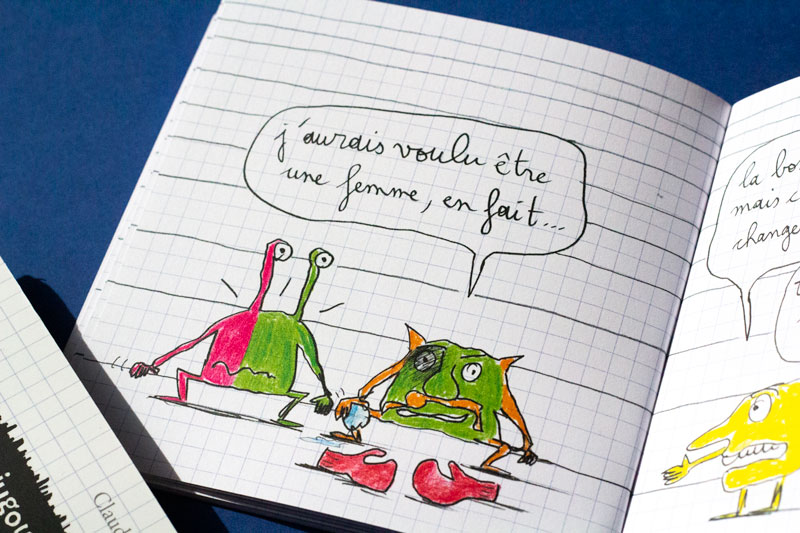 j'aurais voulu être
une femme, en fait...
la
mais
change
Claud